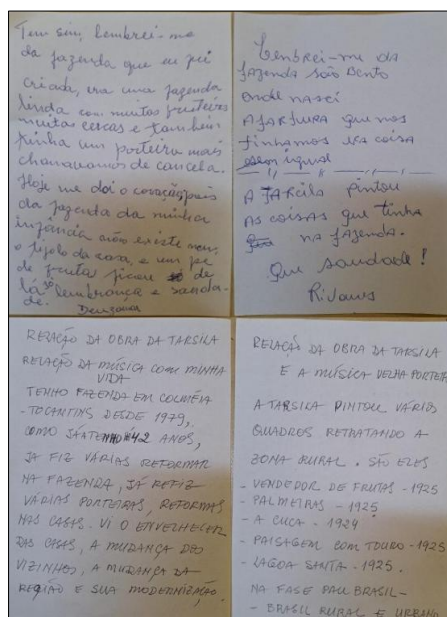 Tem sim, lembrei-me
da fazenda que eu fui
criada, era uma fazenda
linda com muitos fruteiros
muitas cercas e também
tinha um porteira mais
chamavamos de cancela.
Hoje me doi o coração, pois
da fazenda da minha
infância não existe nem
o tijolo da casa, e nem pe
de frutas ficou de
lá só lembrança e sauda-
de.
Lembrei-me da
fazenda são Bento
onde nasci
A fARtURA que nos
tinhamos ERA coisa
sem igual
A TARcila pintou
As coisas que tinha
na fazenda.
Que saudade!
RELAÇÃO DA OBRA DA TARSILA
RELAÇÃO DA MÚSICA COM MINHA
VIDA
TENHO FAZENDA EM COLMÉIA
- TOCANTINS DESDE 1979,
COMO JÁ TENHO 42 ANOS,
JÁ FIZ VÁRIAS REFORMAR
NA FAZENDA, JÁ REFIZ
VÁRIAS PORTEIRAS, REFORMAS
NAS CASAS - VI O ENVELHECER
DAS CASAS, A MUDANÇA DOS
VIZINHOS, A MUDANÇA DA
REGIÃO E SUA MODERNIZAÇÃO.
RELAÇÃO DA OBRA DA TARSILA
E A MÚSICA VELHA PORTEIRA
A TARSILA PINTOU VÁRIOS
QUADRES RETRATANDO A
ZONA RURAL. SÃO ELES
- VENDEDOR DE FRUTAS - 1925
- PALMEIRAS - 1925
- A CUCA - 1924
- PAISAGEM COM TOURO - 1925
- LAGOA SANTA - 1925.
NA FASE PAU BRASIL -
- BRASIL RURAL E URBANO